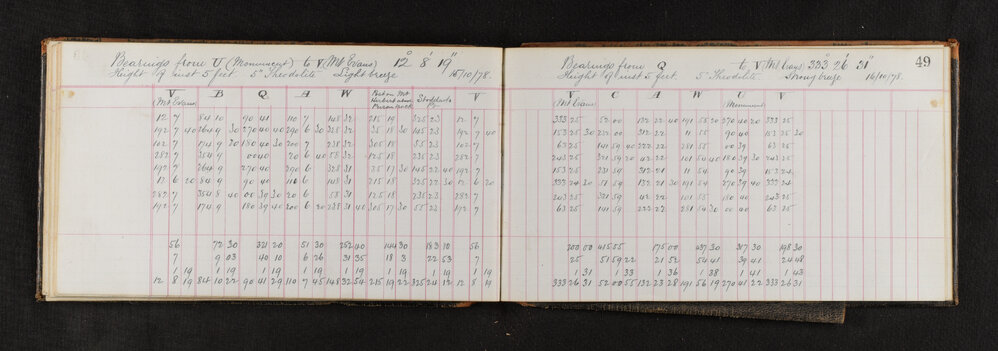 Bearings from U (Monument) to V (Mt Evans) 12° 8' 19"
Height of inst 5 feet 5" Theodolite Light breeze 15/10/78.
V B Q A W Peak on Mt Herbert above Parson Rock Stoddarts Pt V
(Mt Evans)
12 7 84 10 90 41 110 7 148 32 215 19 325 23 12 7
192 7 40 264 9 30 270 40 40 290 6 30 328 32 35 18 30 145 23 192 7 40
102 7 174 9 30 180 40 30 200 7 238 32 305 18 55 23 102 7
282 7 354 9 00 40 20 6 40 58 32 125 18 235 23 282 7
192 7 264 9 270 40 290 6 328 31 35 17 30 145 22 40 192 7
12 6 20 84 9 90 40 110 6 148 31 215 18 325 22 30 12 6 20
282 7 354 8 40 00 39 30 20 6 58 31 125 18 235 23 282 7
192 7 174 9 180 39 40 200 6 20 238 31 40 305 17 30 55 23 192 7
56 72 30 321 20 51 30 252 40 144 30 183 10 56
7 9 03 40 10 6 26 31 35 18 3 22 53 7
1 19 1 19 1 19 1 19 1 19 1 19 1 19 1 19
12 8 19 84 10 22 90 41 29 110 7 45 148 32 54 215 19 22 325 24 12 12 8 19
49
Bearings from Q to V (Mt Evans) 333° 26' 31"
Height of inst 5 feet. 5" Theodolite Strong breeze 16/10/78.
V C A W U V
(Mt Evans) Monument
333 25 52 00 132 22 40 191 55 20 270 40 20 333 25
153 25 30 232 00 312 22 11 55 90 40 153 25 30
63 25 141 59 40 222 22 281 55 00 39 63 25
243 25 321 59 20 42 22 101 54 40 180 39 30 243 25
153 25 231 59 312 21 11 54 90 39 153 24
333 24 30 51 59 132 21 30 191 54 270 39 40 333 24
243 25 321 59 42 22 101 55 180 40 243 25
63 25 141 59 222 22 281 54 30 00 40 63 25
200 00 415 55 175 00 437 30 317 30 198 30
25 51 59 22 21 52 54 41 39 41 24 48
1 31 1 33 1 36 1 38 1 41 1 43
333 26 31 52 00 55 132 23 28 191 56 19 270 41 22 333 26 31